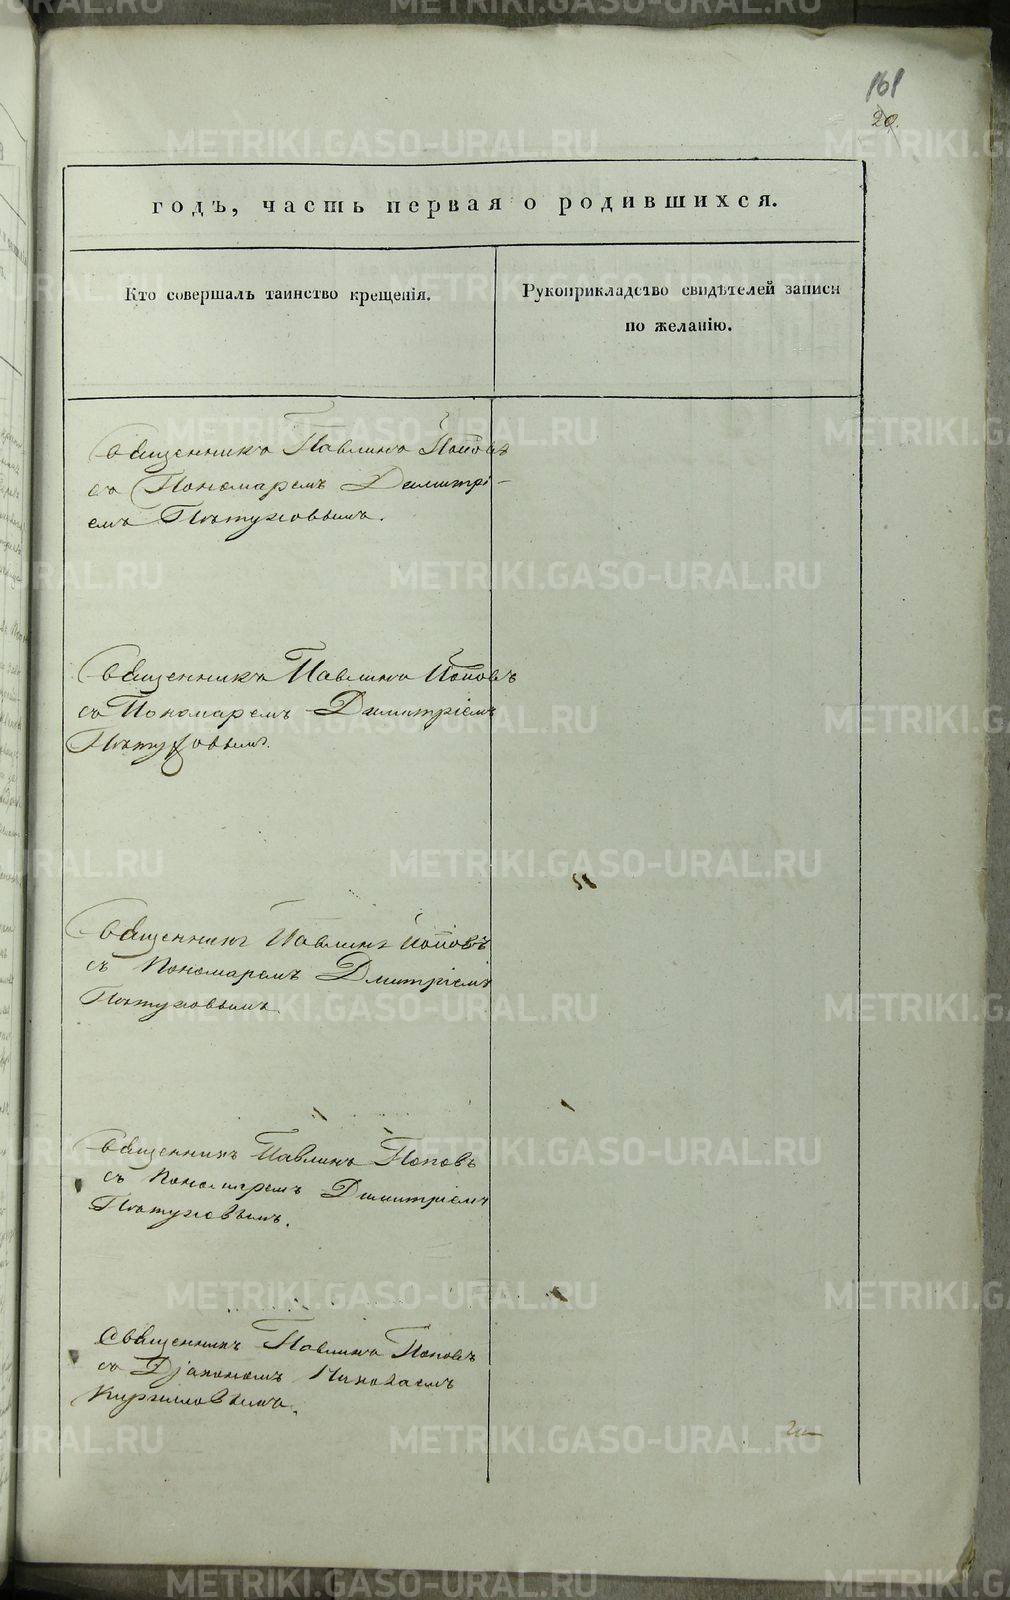 161
20.
годъ, часть первая о родившихся.
Кто совершалъ таинство крещенія.
Рукоприкладство свидѣтелей записи
по желанію.
Священникъ Павлинъ Поповъ
съ Пономаремъ Димитрі-
емъ Пѣтуховымъ.
Священникъ Павлинъ Поповъ
съ Пономаремъ Димитріемъ
Пѣтуховымъ.
Священникъ Павлинъ Поповъ
съ Пономаремъ Дмитріемъ
Пѣтуховымъ
Священникъ Павлинъ Поповъ
съ Пономаремъ Димитріемъ
Пѣтуховымъ.
Священникъ Павлинъ Поповъ
съ Діакономъ Николаемъ
Кирилловымъ.
METRIKI.GASO-URAL.RU